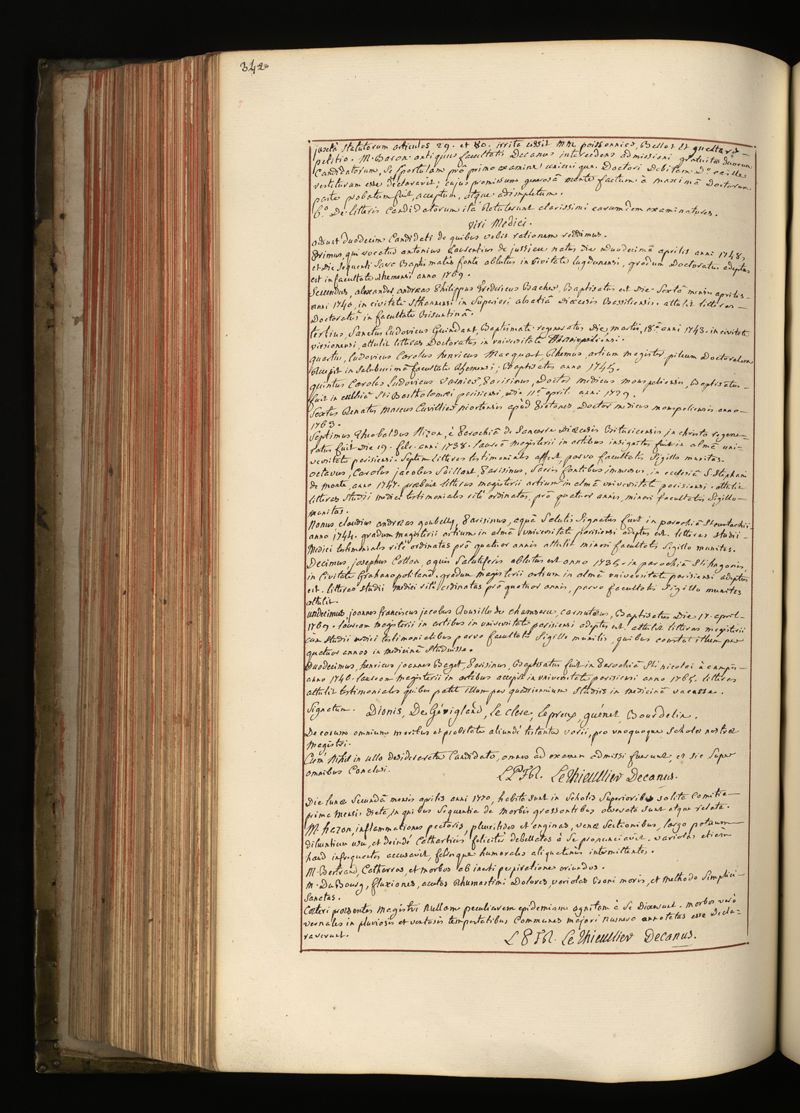 342.
juxtà statutorum articulos 29. et 80. irrita cessit MM. poissonnier, Bellot et
petitio. M. Baron antiquus facultatis Decanus intercedens admissioni gratuitæ duorum
Candidatorum, se sportulam prò primo examine unicuique Doctori Debitam
restituram esse declaravit; cujus promissum maximâ Doctorum
parte probatum fuit, acceptum, atque adimpletum.
6.° De litteris Candidatorum ità retulerunt clarissimi earumdem examinatores.
Viri Medici.
adsunt duodecim Candidati de quibus vobis rationem reddimus.
Primus, qui vocatus antonius Laurentius de jussieu natus Die Duodecimâ aprilis anni 1748,
et Die sequenti sacro Baptismatis fonte ablutus in civitate lugdunensi, gradum Doctoratus adeptus
est in facultate Rhemensi anno 1769.
Secundus, alexander andreas Philippus fredericus Bacher, Baptisatus est Die Sextâ mensis aprilis
anni 1740, in civitate Thannensi in superiori alsatiâ Diœcesis Basiliensis. attulit litteras
Doctoratûs in facultate Bisuntinâ.
tertius, Sanctus Ludovicus Guindant, Baptismate regeneratus Die, martii, 18.â anni 1743. in civitate
virsionensi, attulit litteras Doctoratus in universitate
quartus, Ludovicus Carolus henricus Macquart, Rhemus artium magister, pileum Doctoralem
accepit in saluberrimâ facultate Rhemensi; Baptisatus anno 1745.
quintus Carolus Ludovicus varnier, Parisinus, Doctor medicus monspeliensis, Baptisatus
fuit in ecclesiâ Sti Bartholomæi parisiensi, Die 11.â april. anni 1739.
Sextus Renatus Marcus Cuvillier niortensis apud Pictones, Doctor medicus monspeliensis anno
1763.
Septimus Theobaldus Nizon, è Parochiâ de Sancerre Diœcesis Bituricensis in christo regene-
ratus fuit Die 19. feb. anni 1738. lauream magisterii in artibus insignitus fuit in almâ uni-
versitate parisiensi. Septem litteras testimoniales affert parvo facultatis sigillo munitas.
octavus, Carolus jacobus Saillant, Parisinus, Sacris fontibus immersus, in ecclesiâ S. Stephani
de monte, anno 1747. præbuit litteras magisterii artium in almâ universitate parisiensi. attulit
litteras studii medici testimoniales ritè ordinatas, prò quatuor annis, minori facultatis sigillo
munitas.
Nonus claudius andreas goubelly, Parisinus, aquâ Salutis signatus fuit in parochiâ St Eustachii
anno 1744. gradum magisterii artium in almâ universitate parisiensi adeptus est. litteras studii
medici testimoniales ritè ordinatas prò quatuor annis attulit minori facultatis sigillo munitas.
Decimus, josephus Collon, aquis salutiferis ablutus est anno 1735. in parochiâ
in Civitate Grahanopolitanâ. gradum magisterii artium in almâ universitate parisiensi adeptus
est. litteras studii medici ritè ordinatas prò quatuor annis, parvo facultatis sigillo munitas
attulit.
undecimus, joannes franciscus jacobus de chamseru, carnutæus, Baptisatus Die 17. april.
1769. lauream magisterii in artibus in universitate parisiensi adeptus est. attulit litteras magisterii
cum studii medici testimonialibus parvo facultatis sigillo munitis, quibus constat illum per
quatuor annos in medicinâ studuisse.
Duodecimus, henricus joannes Paget, Parisinus, Baptisatus fuit in Parochiâ Sti nicolai à campis
anno 1740. lauream magisterii in artibus accepit in universitate parisiensi anno 1765. litteras
attulit testimoniales quibus patet illum per quadriennium studiis in medicinâ vacasse.
Signatum. Dionis, De Gévigland, le Clerc, lepreux, guénet, Bourdelin.
De eorum omnium moribus et probitate aliundè testante voce, pro unoquoque scholæ nostræ
Magistri.
Cùm nihil in ullo desideraretur Candidato, omnes ad examen admissi fuerunt, et sic super
omnibus Conclusi.
L P Fh. Le Thieullier Decanus.
Die lunæ Secundâ mensis aprilis anni 1770, habita sunt in Scholis Superioribus solita Comitia
prima mensis dicta, in quibus sequentia de morbis grassantibus observata sunt atque relata.
M. hazon, inflammationes pectoris, pleuritides et anginas, venæ sectionibus, largo potuum
diluentium usu, et deindè Catharticis feliciter debellatas à se pronunciavit. variolas etiam
haud infrequentes accusavit, febresque humorales aliquatenùs intermittentes.
M. Bertrand, Catharros, et morbos ab inerti perspiratione oriundos.
M. Dubourg, fluxiones, acutos rheumatismi dolores, variolas boni moris, et methodo simplici
sanatas.
Cæteri præsentes Magistri nullam peculiarem epidemiam agnitam à se Dixerunt. morbos verò
vernales in pluviosis et ventosis tempestatibus communes majori numero annotatos esse decla-
raverunt.
L P Fh. Le Thieullier Decanus.